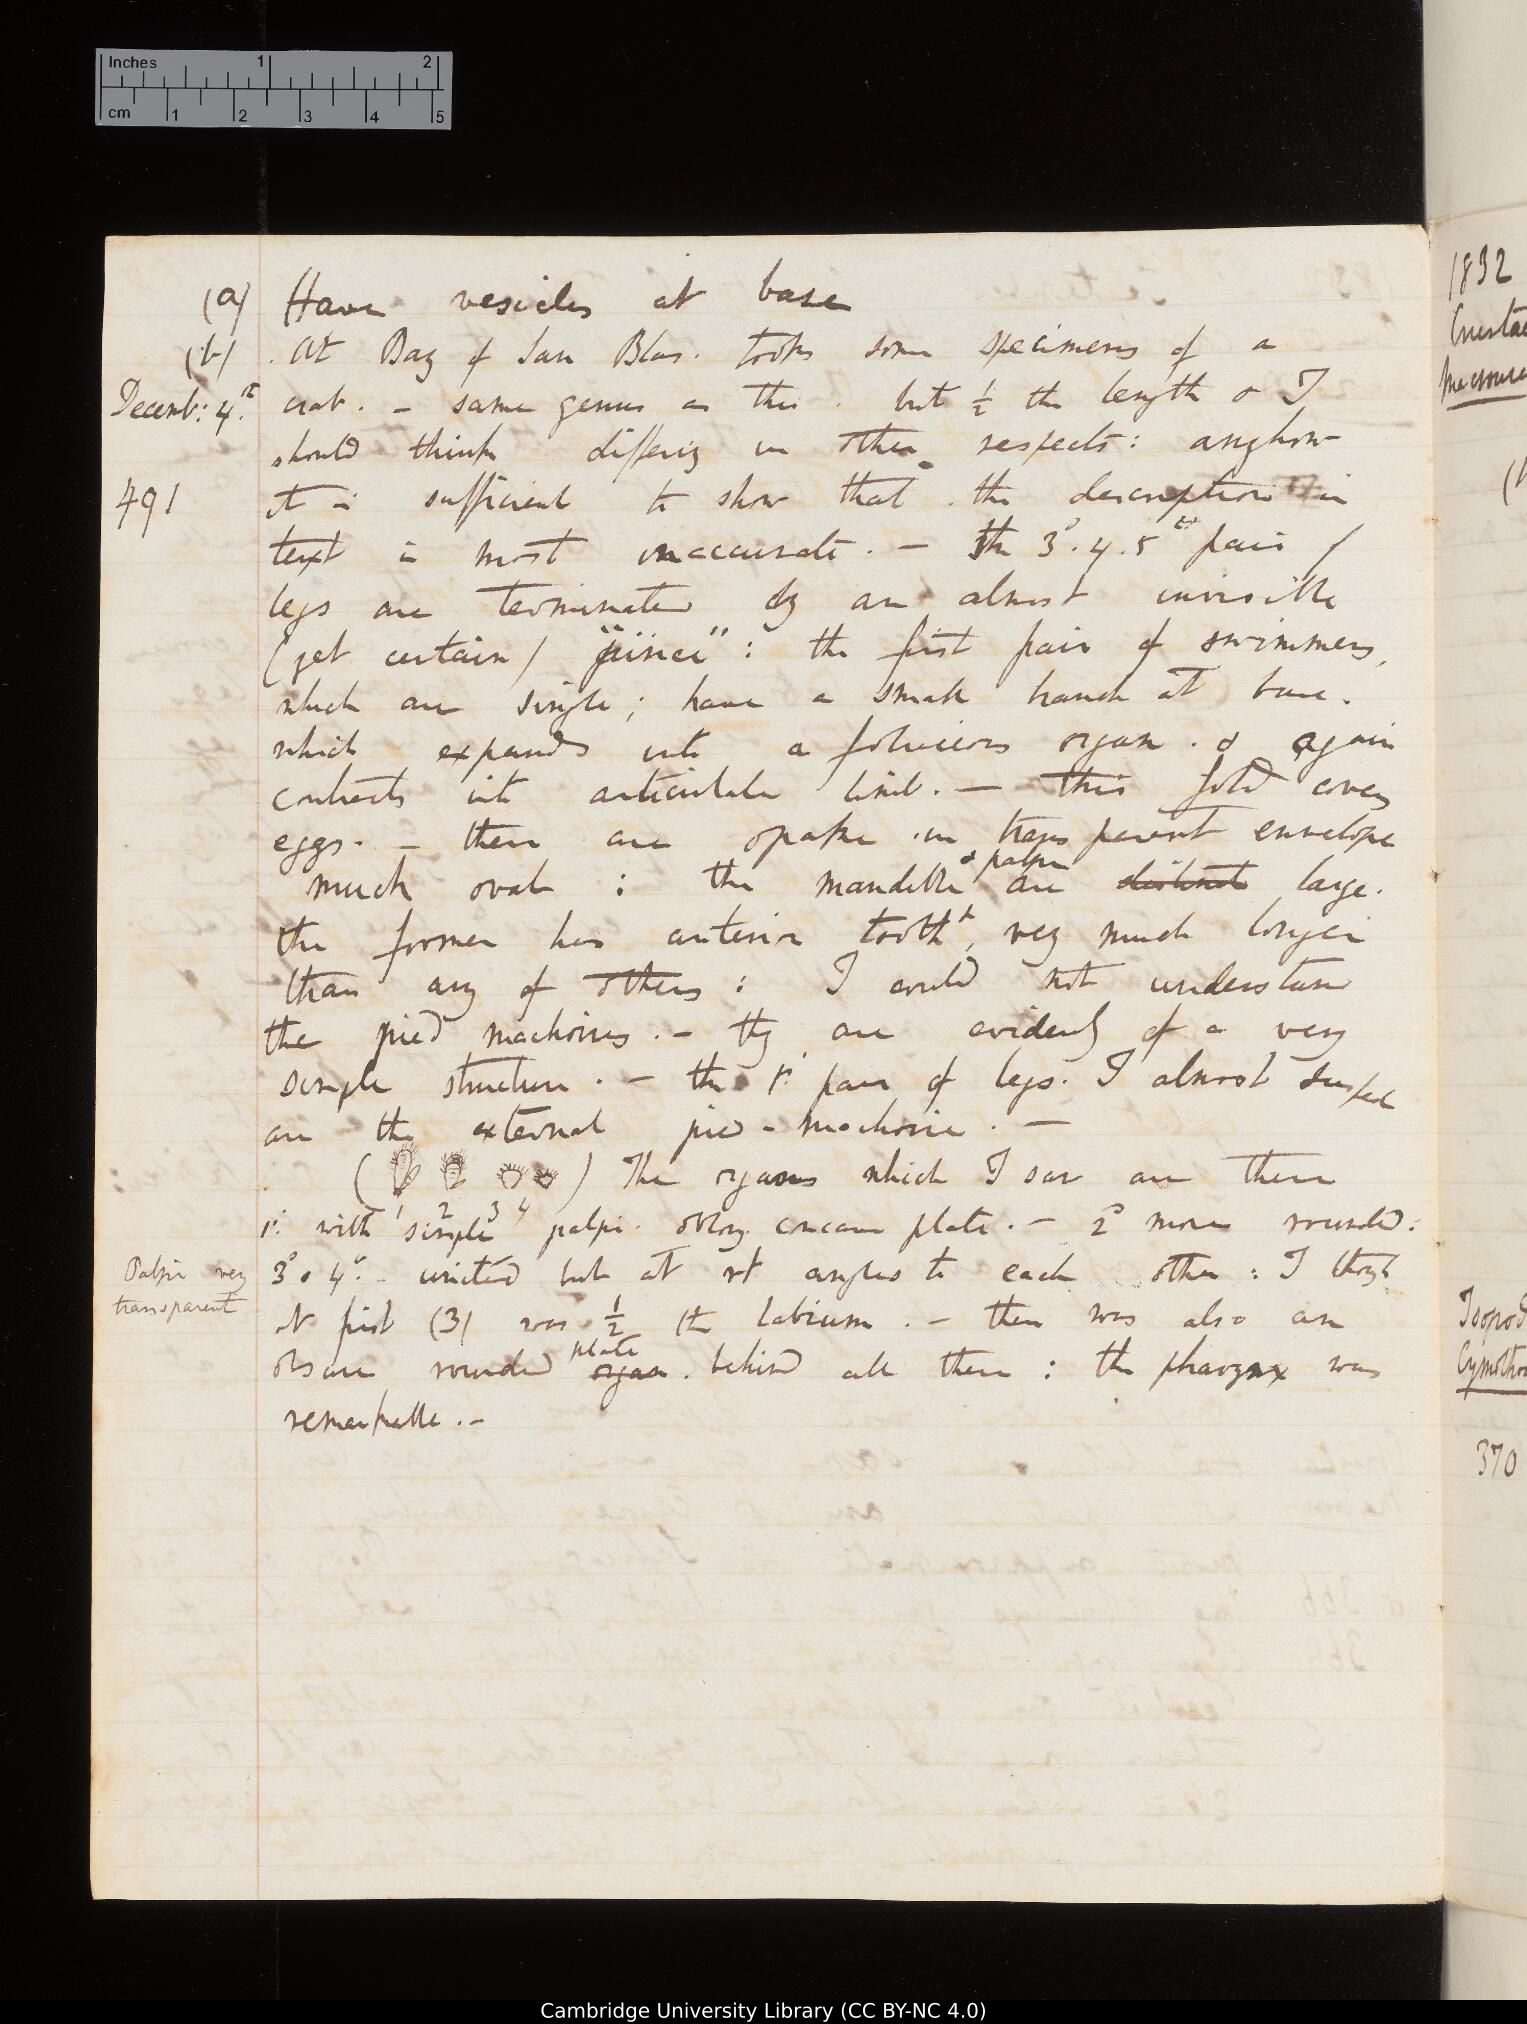 Inches 1 2
cm 1 2 3 4 5
(a) Have vesicles at base
(b) . At Bay of San Blas. took some specimens of a
Decemb: 4th. crab. — same genus as this . but ½ the length & I
should think differing in other respects: anyhow
491 it is sufficient to show that the description in
text is most inaccurate. — The 3d. 4. 5th pair of
legs are terminated by an almost invisible
(yet certain) "pince": the first pair of swimmers,
which are single; have a small branch at base.
which expands into a foliaceous organ. & again
contracts into articulate limb. — this fold covers
eggs. — these are opake in transparent envelope
& palpi
much oval : the mandible are distinct large.
the former has anterior tooth, very much longer
than any of others: I could not understand
the pied machoires. — they are evidently of a very
simple structure. — the 1st pair of legs. I almost suspect
are the external pied-machoire. —
( ) The organs which I saw are these
1 2 3 4
1st with simple palpi. oblong concave plate. — 2d more rounded:
Palpi very
transparent
3d & 4th. united but at rt angles to each other: I thought
at first (3) was ½ the labium. — there was also an
plate
obscure rounded organ. behind all these: the pharynx was
remarkable. —
1832
370
Cambridge University Library (CC BY-NC 4.0)